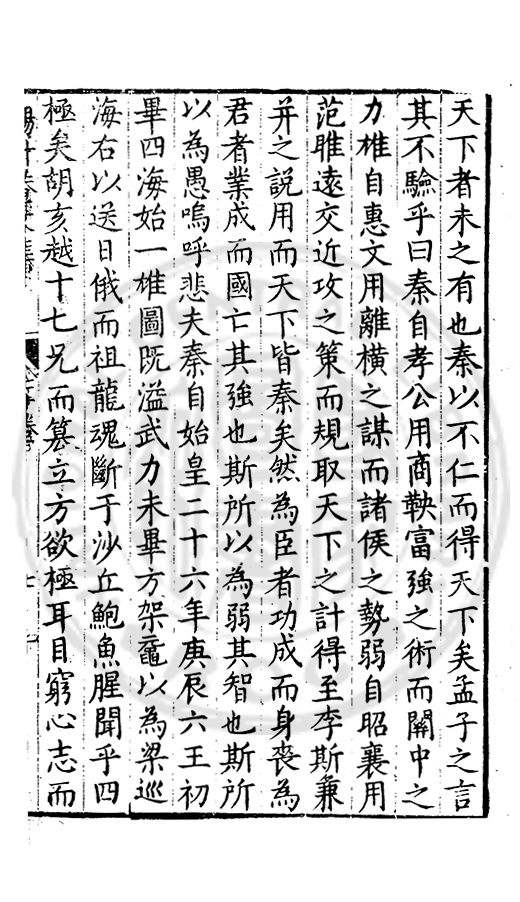 天下者未之有也秦以不仁而得天下矣孟子之言
其不驗乎曰秦自孝公用商鞅富強之術而關中之
力雄自惠文用離橫之謀而諸侯之勢弱自昭襄用
范雎遠交近攻之策而規取天下之計得至李斯兼
并之説用而天下皆秦矣然為臣者功成而身喪為
君者業成而國亡其強也斯所以為弱其智也斯所
以為愚嗚呼悲夫秦自始皇二十六年庚辰六王初
畢四海始一雄圖既溢武力未畢方架黿以為梁巡
海右以送日俄而祖龍魂斷于沙丘鮑魚腥聞乎四
極矣胡亥越十七兄而篡立方欲極耳目窮心志而